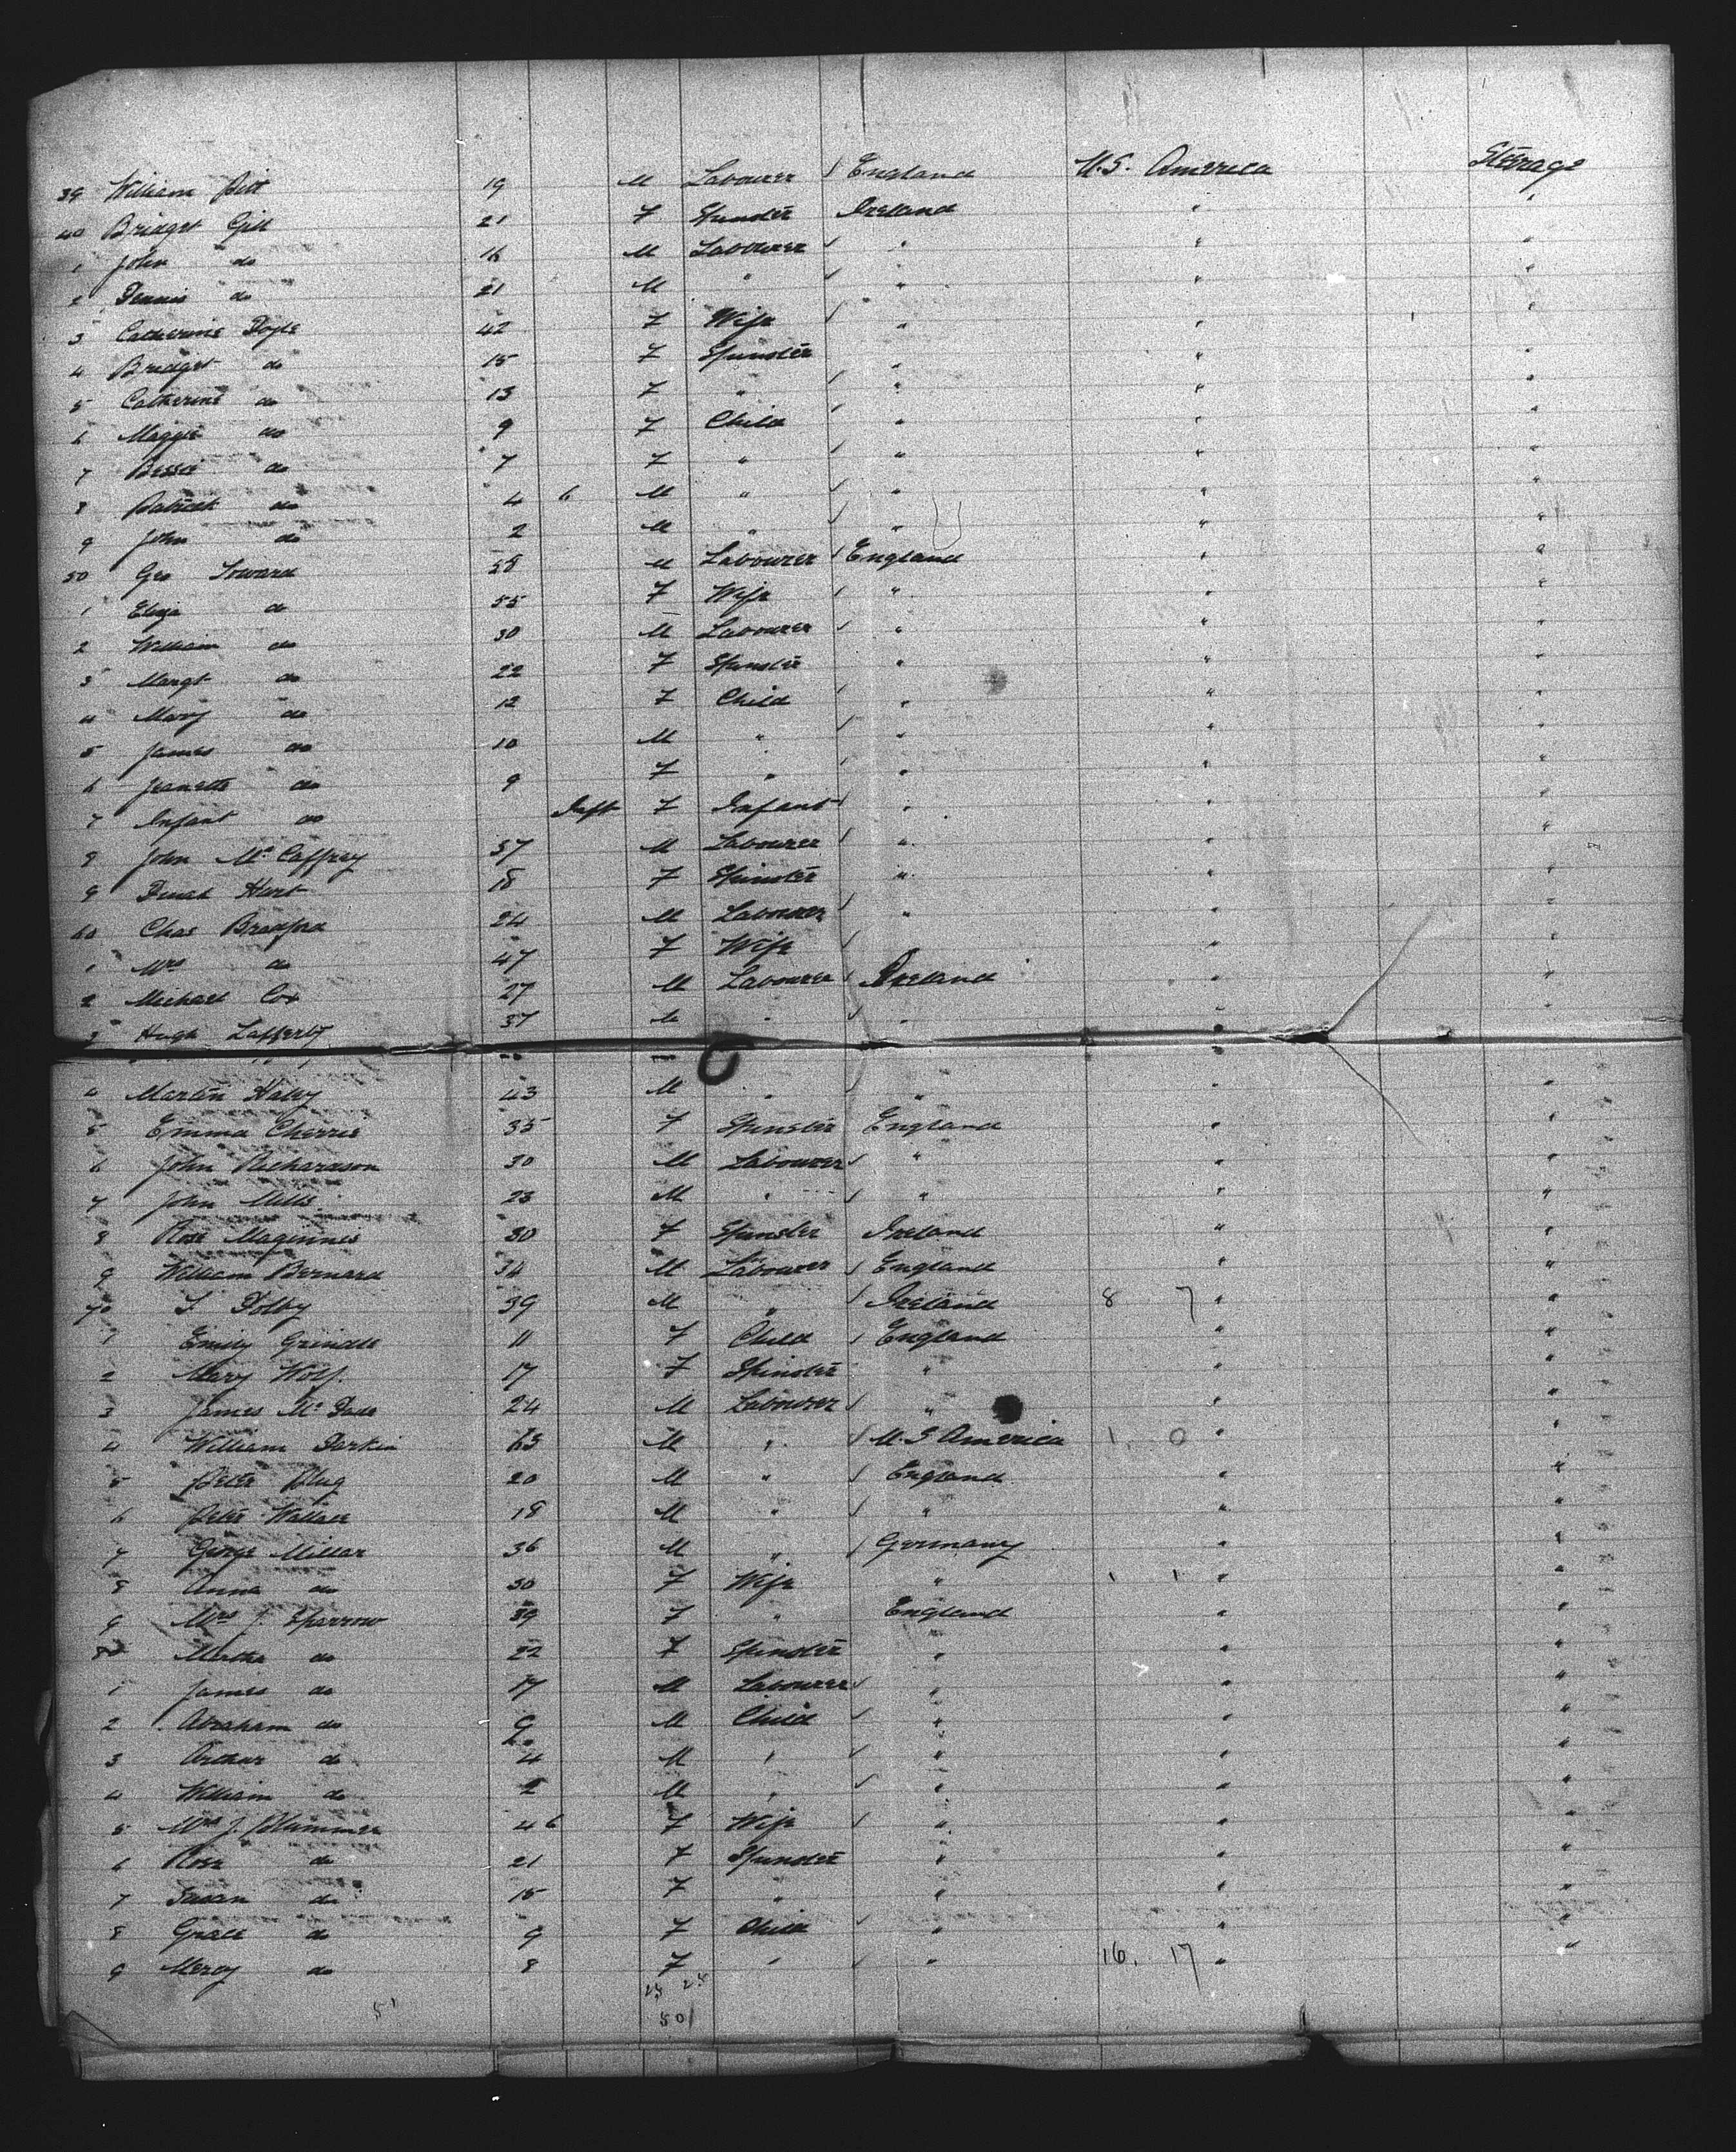 39 William Pitt 19 M Labourer England U.S. America Steerage
40 Bridget Gill 21 F Spinster Ireland " "
1 John do 16 M Labourer " " "
2 Dennis do 21 M " " " "
3 Catherine Doyle 42 F Wife " " "
4 Bridget do 15 F Spinster " " "
5 Catherine do 13 F " " " "
6 Maggie do 9 F Child " " "
7 Bessie do 7 F " " " "
8 Patrick do 4 6 M " " " "
9 John do 2 M " " " "
50 Geo Soward 58 M Labourer England " "
1 Eliza do 55 F Wife " " "
2 William do 30 M Labourer " " "
3 Margt do 22 F Spinster " " "
4 Mary do 12 F Child " " "
5 James do 10 M " " " "
6 Jeanette do 9 F " " " "
7 Infant do Inft F Infant " " "
8 John McCaffrey 37 M Labourer " " "
9 Hart 18 F Spinster " " "
60 Chas Bradford 24 M Labourer " " "
1 Mrs do 47 F Wife " "
2 Michael Cox 27 M Labourer Ireland " "
3 Hugh Lafferty 37 M " " " "
4 Martin Haley 43 M " " " "
5 Emma Cherrie 35 F Spinster England " "
6 John Richardson 30 M Labourer " " "
7 John Mills 23 M " " " "
8 Rose Maginnes 30 F Spinster Ireland " "
9 William Bernard 34 M Labourer England " "
70 Dolby 39 M " Ireland 8 7 " "
1 Emily Grindle 11 F Child England " "
2 Mary Wolf 17 F Spinster " " "
3 James Mc 24 M Labourer " " "
4 William Darkin 63 M " U.S America 1. 0 " "
5 Peter 20 M " England " "
6 Peter Wallace 18 M " " " "
7 George Millar 36 M " Germany " "
8 Anna do 30 F Wife " 1 1 " "
9 Mrs J. Sparrow 39 F " England " "
80 Martha do 22 F Spinster " " "
1 James do 17 M Labourer " " "
2 Abraham do 9 M Child " " "
3 Arthur do 4 M " " " "
4 William do 2 M " " " "
5 Mrs J. Plummer 46 F Wife " " "
6 Rose do 21 F Spinster " " "
7 Susan do 15 F " " " "
8 Grace do 9 F Child " " "
9 Mercy do 8 F " " 16. 17 " "
51 50